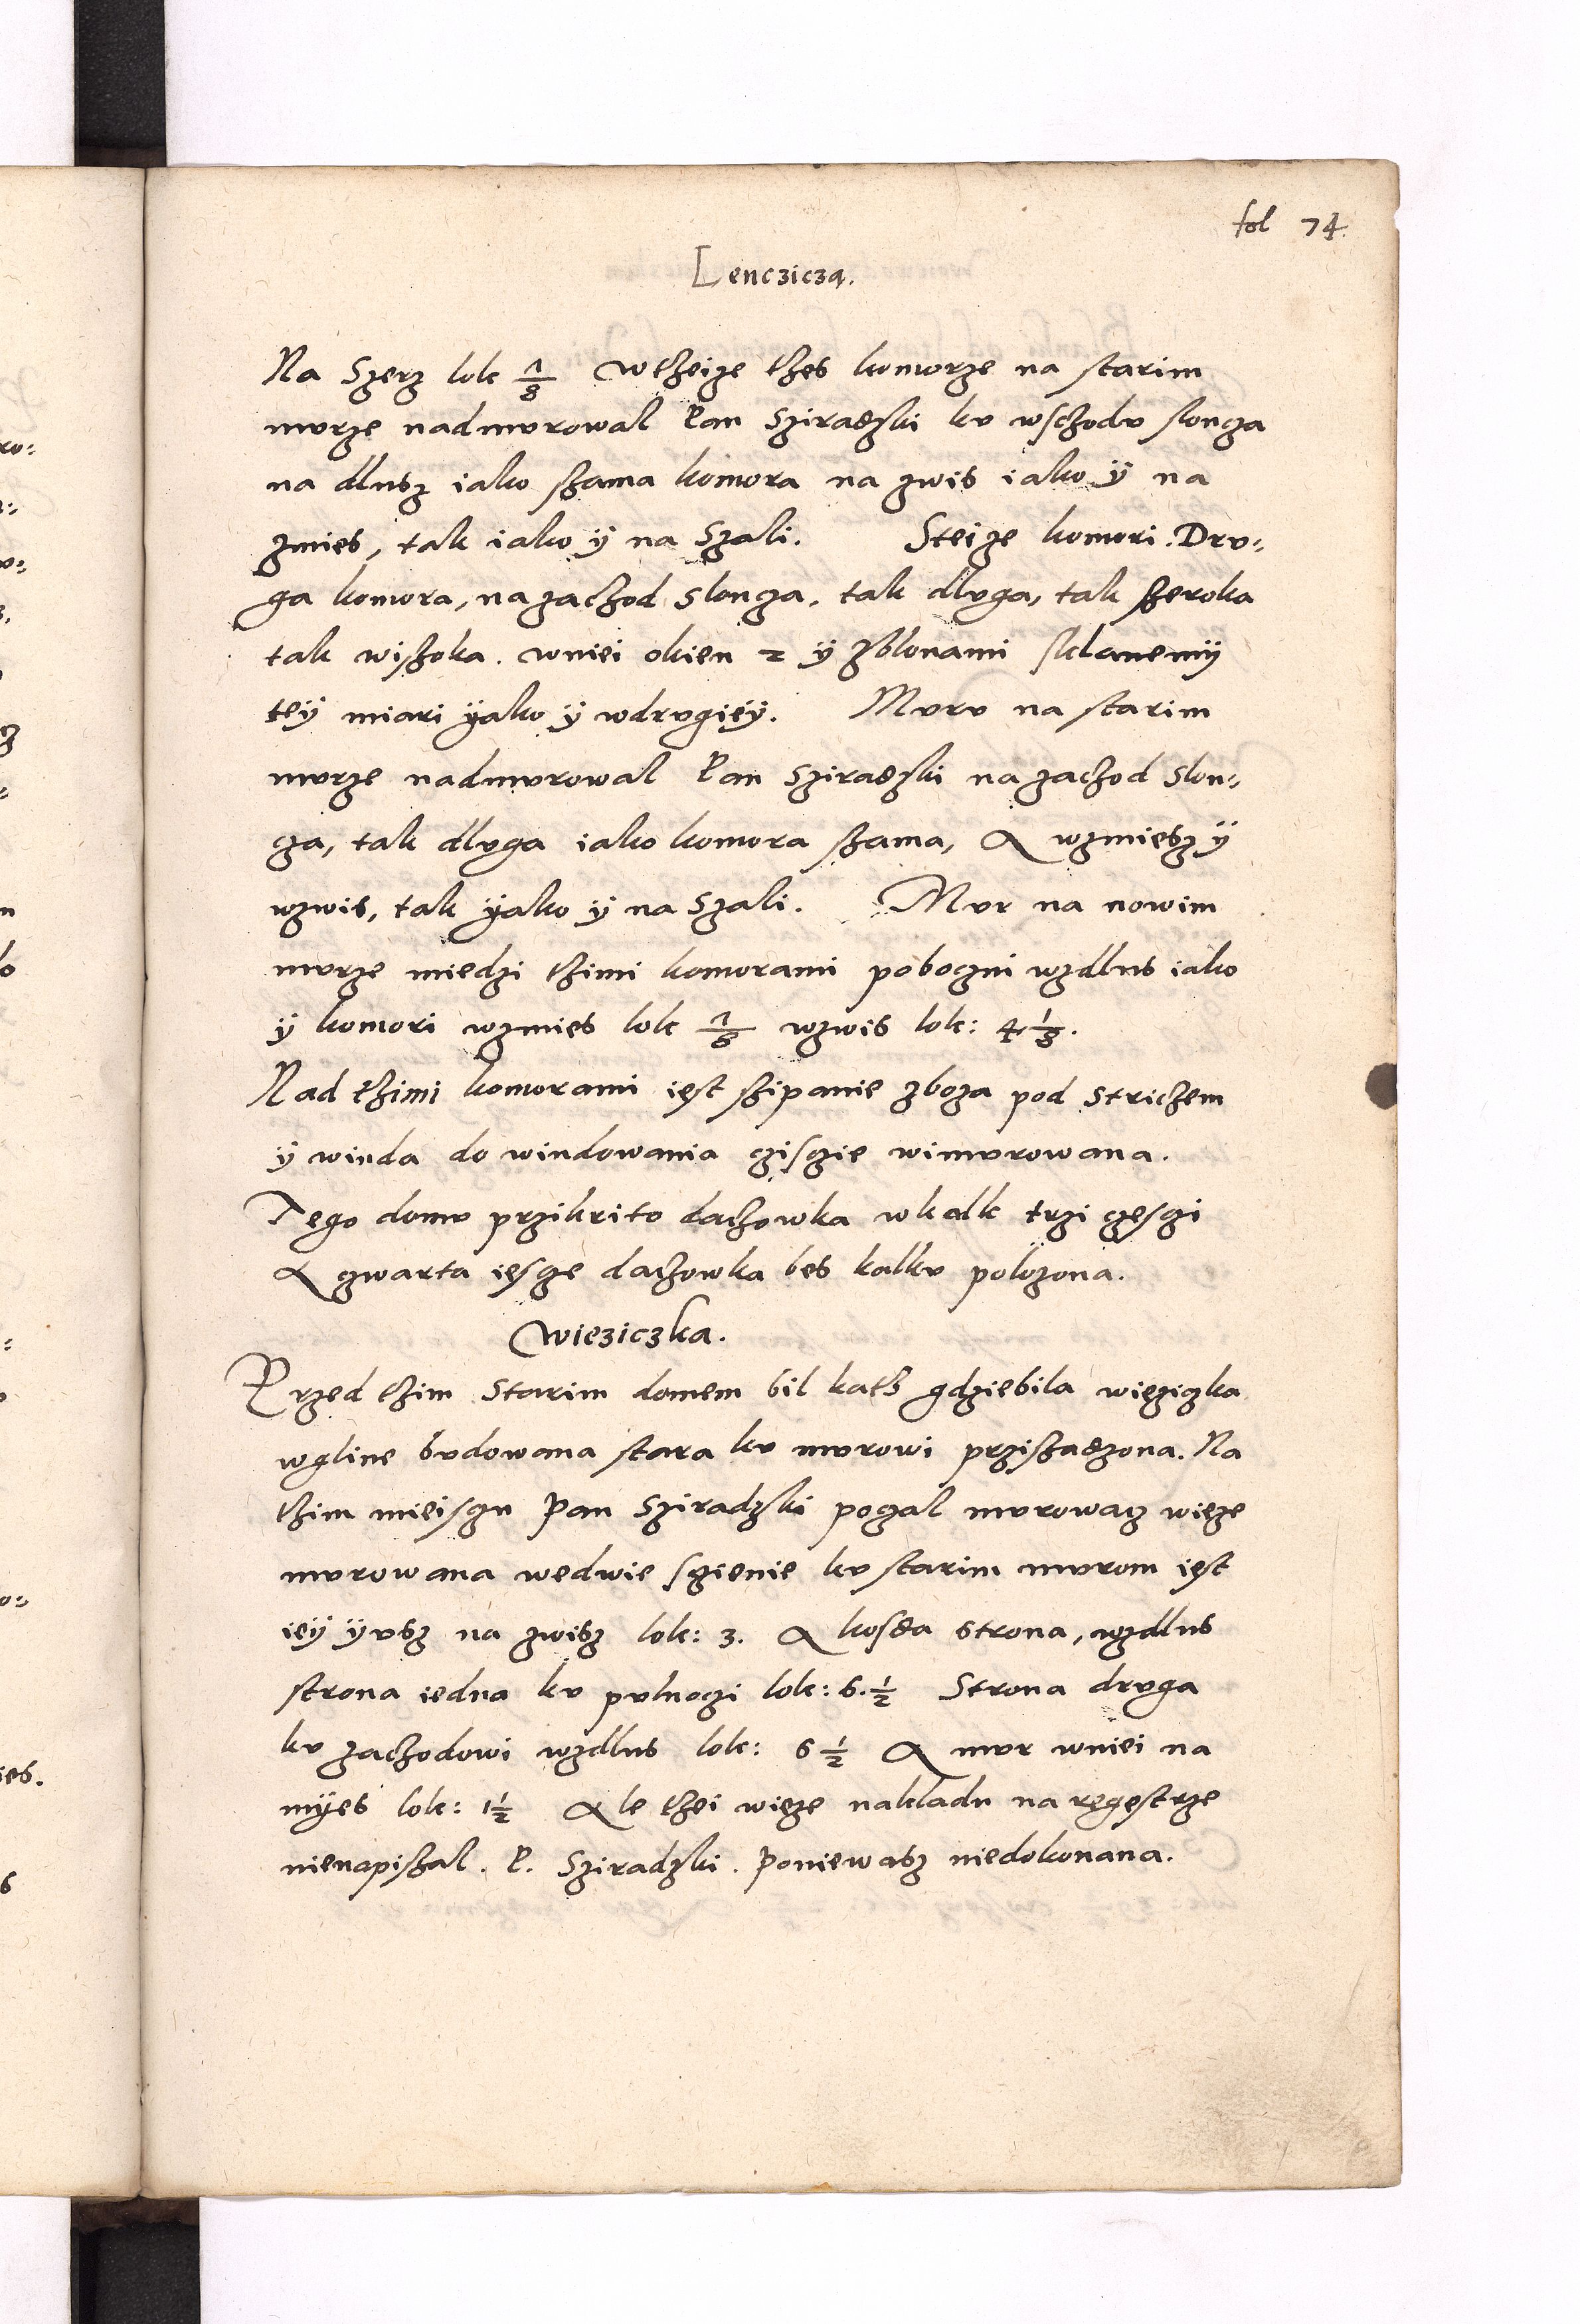 fol 74.
Lenczicza.
Na Szerz lok 1/8 Wtheize thes komorze na starim
mvrze nadmvrowal Pan Sziradzski kv wschodv sloncza
na dlusz iako szama komora na zwis iako ÿ na
zmies, tak iako ÿ na Szali. Steize komori. Drv=
ga komora, na zachod Sloncza, tak dlvga, tak szeroka
tak wiszoka. wniei okien 2 ÿ zblonami sklanemÿ
teÿ miari ÿako ÿ wdrvgieÿ. Mvrv na starim
mvrze nadmvrowal Pan Sziradzski na zachod Slon=
cza, tak dlvga iako komora szama, A wzmiesz ÿ
wzwis, tak ÿako ÿ na Szali. Mvr na nowim
mvrze miedzi thimi komorami poboczni wzdlus iako
ÿ komori wzmies lok 1/8 wzwis lok: 4 1/8.
Nad thimi komorami iest szipanie zboza pod Strichem
ÿ winda do windowania cziscie wimvrowana.
Tego domv przikrito dachowka wkalk trzi czesczi
A czwarta iescze dachowka bes kalkv polozona.
Wieziczka.
Przed thim Starim domem bil kath gdziebila wieziczka
wgline bvdowana stara kv mvrowi prziszadzona. Na
thim mieisczu Pan Sziradzski poczal mvrowacz wieze
mvrowana wedwie sczienie kv starim mvrom iest
ieÿ ÿvsz na zwisz lok: 3. A kosda strona, wzdlus
strona iedna kv pvlnoczi lok: 6. 1/2 Strona drvga
kv zachodowi wzdlus lok: 6 1/2 A mvr wniei na
mÿes lok: 1 1/2 Ale thei wieze nakladu na regestrze
nienapiszal. P. Sziradzski. Poniewasz niedokonana.